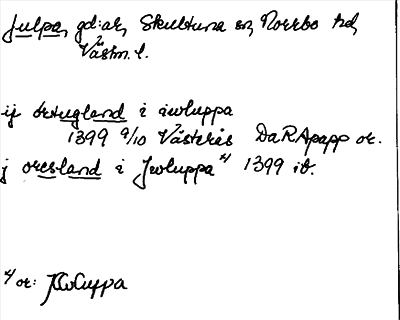 Julpa, gd:ar, Skultuna sn, Norrbo hd,
Västm. l.
ij örtugland i iwluppa
1399 9/10 Västerås DaRApapp or.
j öresland i Jwluppa x) 1399 ib.
x) or: JWluppa